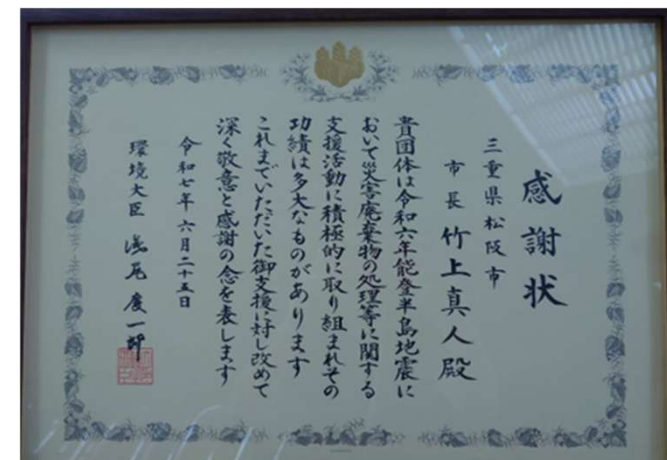 感謝状
三重県松阪市
市長 竹上真人殿
貴団体は令和六年能登半島地震に
おいて災害廃棄物の処理等に関する
支援活動に積極的に取り組まれその
功績は多大なものがあります
これまでいただいた御支援に対し改めて
深く敬意と感謝の念を表します
令和七年六月二十五日
環境大臣 浅尾慶一郎